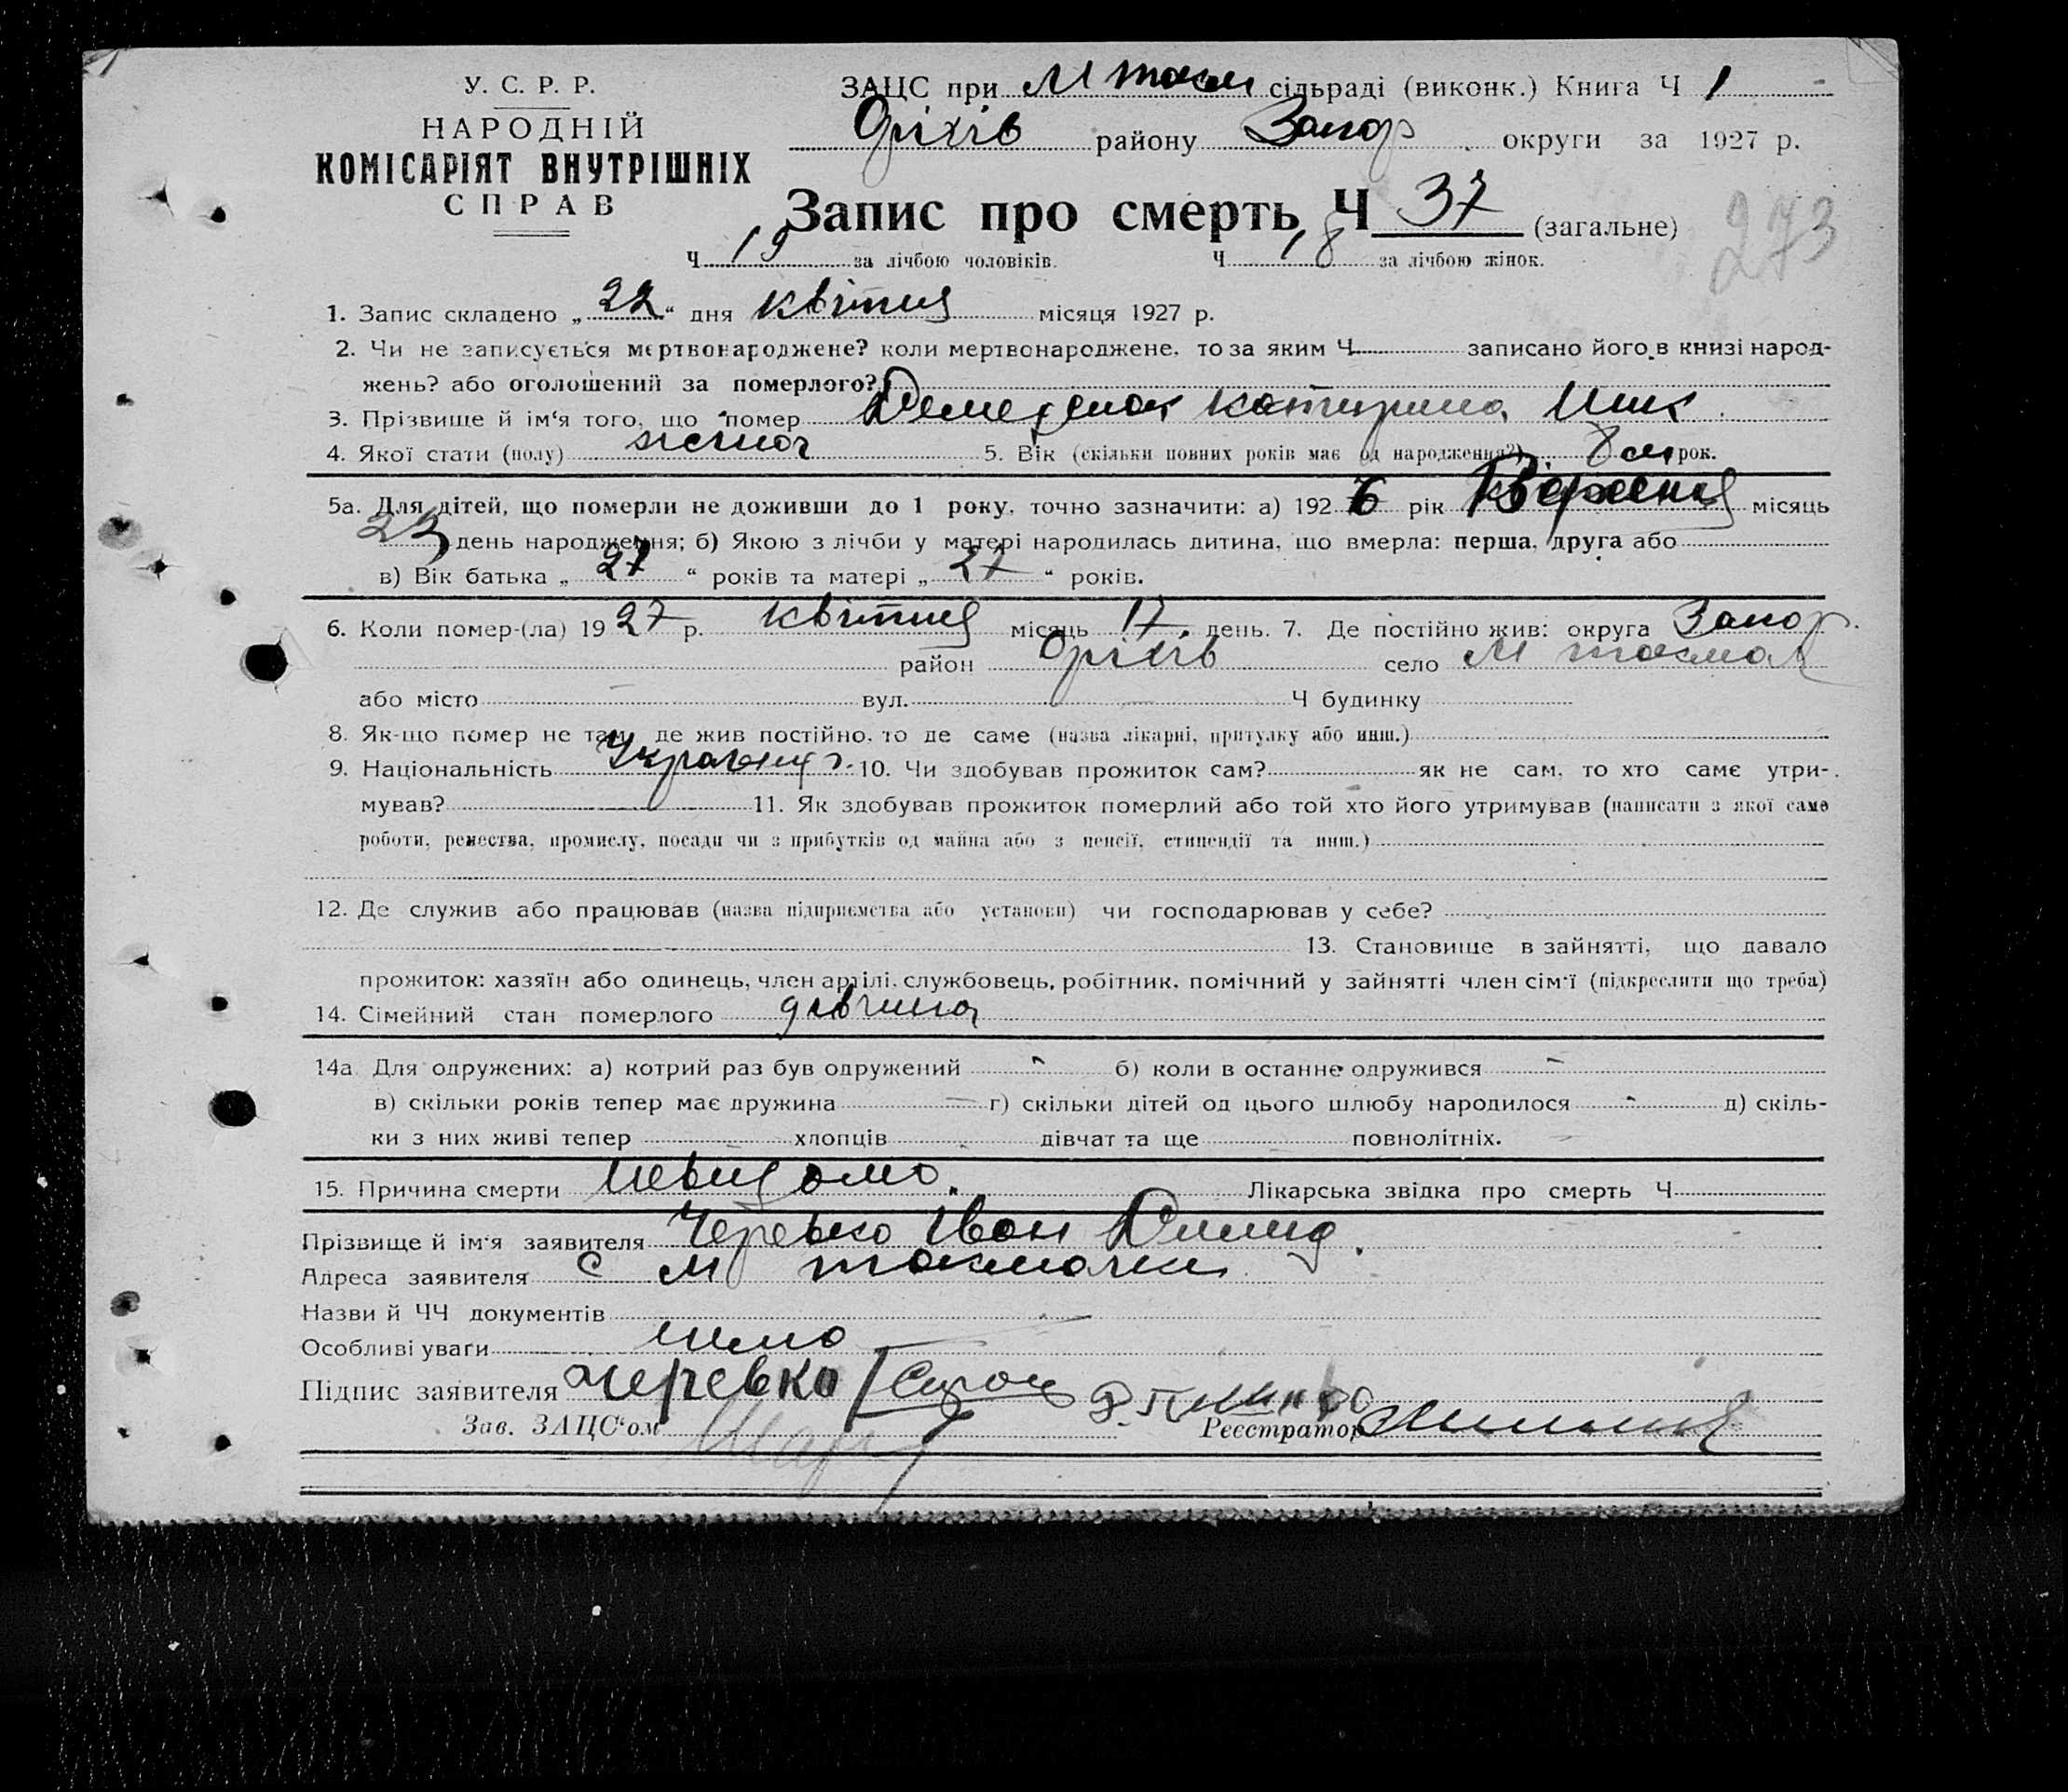 У. С. Р. Р.
НАРОДНІЙ
КОМІСАРІЯТ ВНУТРІШНІХ
СПРАВ
ЗАЦС при М токм сільраді (виконк.) Книга Ч 1
Оріхів району Запор округи за 1927 р.
Запис про смерть Ч 37 (загальне)
273
Ч 19 за лічбою чоловіків. Ч 18 за лічбою жінок.
1. Запис складено „22“ дня квітня місяця 1927 р.
2. Чи не записується мертвонароджене? коли мертвонароджене, то за яким Ч записано його в книзі народ-
жень? або оголошений за померлого?
3. Прізвище й ім‘я того, що помер Катерина
4. Якої стати (полу) жіноч 5. Вік (скільки повних років має од народження?) 7 м рок.
5а. Для дітей, що померли не доживши до 1 року, точно зазначити: а) 1926 рік Вересня місяць
23 день народження; б) Якою з лічби у матері народилась дитина, що вмерла: перша, друга або
в) Вік батька „27“ років та матері „27“ років.
6. Коли помер-(ла) 1927 р. квітня місяць 17 день. 7. Де постійно жив: округа Запор.
район Оріхів село М токмач
або місто вул. Ч будинку
8. Як-що помер не там, де жив постійно, то де саме (назва лікарні, притулку або инш.)
9. Національність Українц. 10. Чи здобував прожиток сам? як не сам, то хто саме утри-
мував? 11. Як здобував прожиток померлий або той хто його утримував (написати з якої саме
роботи, ремества, промислу, посади чи з прибутків од майна або з пенсії, стипендії та инш.)
12. Де служив або працював (назва підприємства або установи) чи господарював у себе?
13. Становище в зайнятті, що давало
прожиток: хазяїн або одинець, член артілі, службовець, робітник, помічний у зайнятті член сім‘ї (підкреслити що треба)
14. Сімейний стан померлого дівчина
14а Для одружених: а) котрий раз був одружений б) коли в останнє одружився
в) скільки років тепер має дружина г) скільки дітей од цього шлюбу народилося д) скіль-
ки з них живі тепер хлопців дівчат та ще повнолітніх.
15. Причина смерти невидомо. Лікарська звідка про смерть Ч
Прізвище й ім‘я заявителя Черевко Іван
Адреса заявителя с М токмачки
Назви й ЧЧ документів
Особливі уваги нимо
Підпис заявителя Черевко
Зав. ЗАЦС‘ом Реєстратор